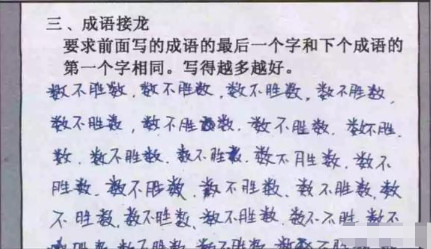 三、成语接龙
要求前面写的成语的最后一个字和下个成语的
第一个字相同。写得越多越好。
数不胜数，数不胜数，数不胜数，数不胜数，
数不胜数，数不胜数，数不胜数，数不胜
数，数不胜数，数不胜数，数不胜数，数不
胜数，数不胜数，数不胜数，数不胜数，数
不胜数，数不胜数，数不胜数，数不胜，数
不胜数，数不胜数，数不胜数，数不胜数